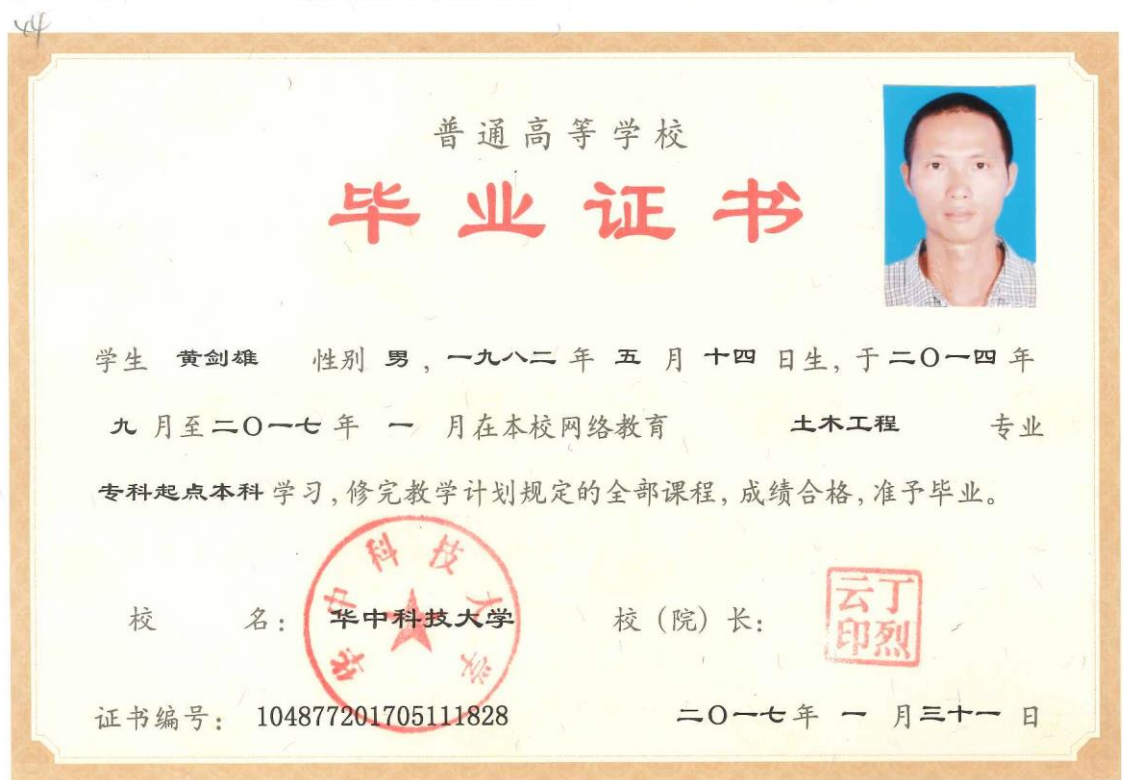 44
普通高等学校
毕业证书
学生 黄剑雄 性别 男，一九八二 年 五 月 十四 日生，于 二〇一四 年
九 月至 二〇一七 年 一 月在本校网络教育 土木工程 专业
专科起点本科 学习，修完教学计划规定的全部课程，成绩合格，准予毕业。
华中科技大学
校 名： 华中科技大学 校（院）长：
丁烈云印
证书编号： 104877201705111828 二〇一七 年 一 月 三十一 日